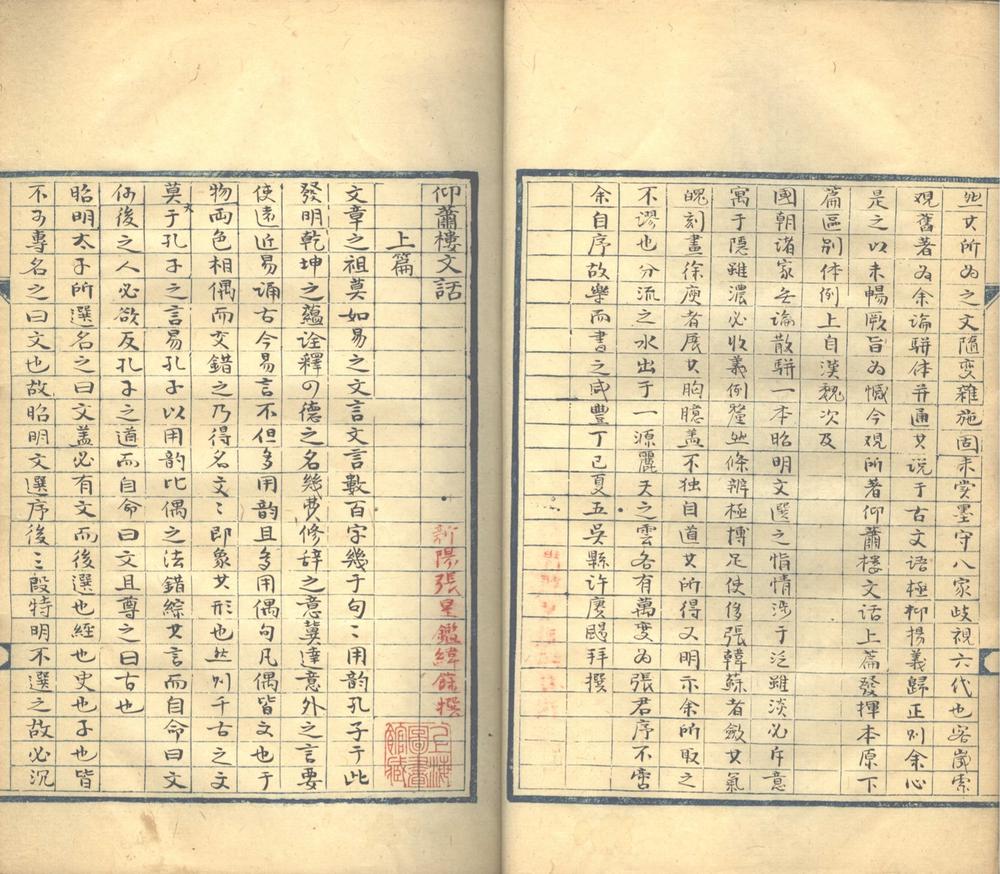 此其所为之文隨变雜施固未嘗墨守八家歧視六代也客歲索
观舊著为余论駢体并通其说于古文语極抑揚義歸正则余心
是之以未暢厥旨为憾今观所著仰蕭樓文话上篇發揮本原下
篇區别体例上自漢魏次及
國朝诸家无论散駢一本昭明文選之恉情涉于泛雖淡必斥意
寓于隱雖濃必收義例釐然條辨極博足使侈張韓蘇者斂其氣
魄刻畫徐庾者展其胸臆盖不独自道其所得又明示余所取之
不謬也分流之水出于一源麗天之雲各有萬变为張君序不啻
余自序故樂而書之咸豐丁巳夏五吳縣许麐颺拜撰
仰蕭樓文話
新陽張星鑑緯餘撰
上篇
文章之祖莫如易之文言文言數百字幾于句〻用韵孔子于此
發明乾坤之蘊诠釋四德之名幾费修辞之意冀達意外之言要
使遠近易诵古今易言不但多用韵且多用偶句凡偶皆文也于
物两色相偶而交錯之乃得名文〻即象其形也然则千古之文
莫大于孔子之言易孔子以用韵比偶之法錯綜其言而自命曰文
何後之人必欲反孔子之道而自命曰文且尊之曰古也
昭明太子所選名之曰文盖必有文而後選也經也史也子也皆
不可專名之曰文也故昭明文選序後三段特明不選之故必沉
上海圖書館藏